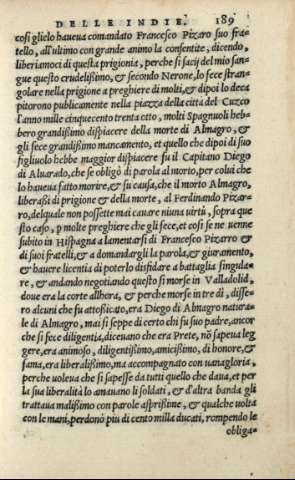 DELLE INDIE. 189
cosi glielo haueua comandato Francesco Pizaro suo fra⸗
tello, all'ultimo con grande animo la consentite, dicendo,
liberiamoci di questa prigionia, perche si sacij del mio san⸗
gue questo crudelissimo, & secondo Nerone, lo fece stran⸗
golare nella prigione a preghiere di molti, & dipoi lo deca
pitorono publicamente nella piazza della città del Cuzco
l'anno mille cinquecento trenta otto, molti Spagnuoli heb⸗
bero grandissimo dispiacere della morte di Almagro, &
gli fece grandissimo mancamento, et quello che dipoi di suo
figliuolo hebbe maggior dispiacere fu il Capitano Diego
di Aluarado, che se obligò di parola al morto, per colui che
lo haueua fatto morire, & fu causa, che il morto Almagro,
liberassi di prigione & della morte, al Ferdinando Pizar⸗
ro, del quale non possette mai cauare niuna uirtù, sopra que
sto caso, p molte preghiere che gli fece, et cosi se ne uenne
subito in Hispagna a lamentarsi di Francesco Pizarro &
di suoi fratelli, & a domandargli la parola, & giuramento,
& hauere licentia di poterlo disfidare a battaglia singula
re, & andando negotiando questo si morse in Valladolid,
doue era la corte allhora, & perche morse in tre dì, disse⸗
ro alcuni che fu attossicato, era Diego di Almagro natura⸗
le di Almagro, mai si seppe di certo chi fu suo padre, ancor
che si fece diligentia, diceuano che era Prete, nō sapeua leg
gere, era animoso, diligentissimo, amicissimo, di honore, &
fama, era liberalissimo, ma accompagnato con uanagloria,
perche uoleua che si sapesse da tutti quello che daua, et per
la sua liberalità lo amauano li soldati, & d'altra banda gli
trattaua malissimo con parole asprissime, & qualche uolta
con le mani, perdonò piu di cento milla ducati, rompendo le
obliga⸗